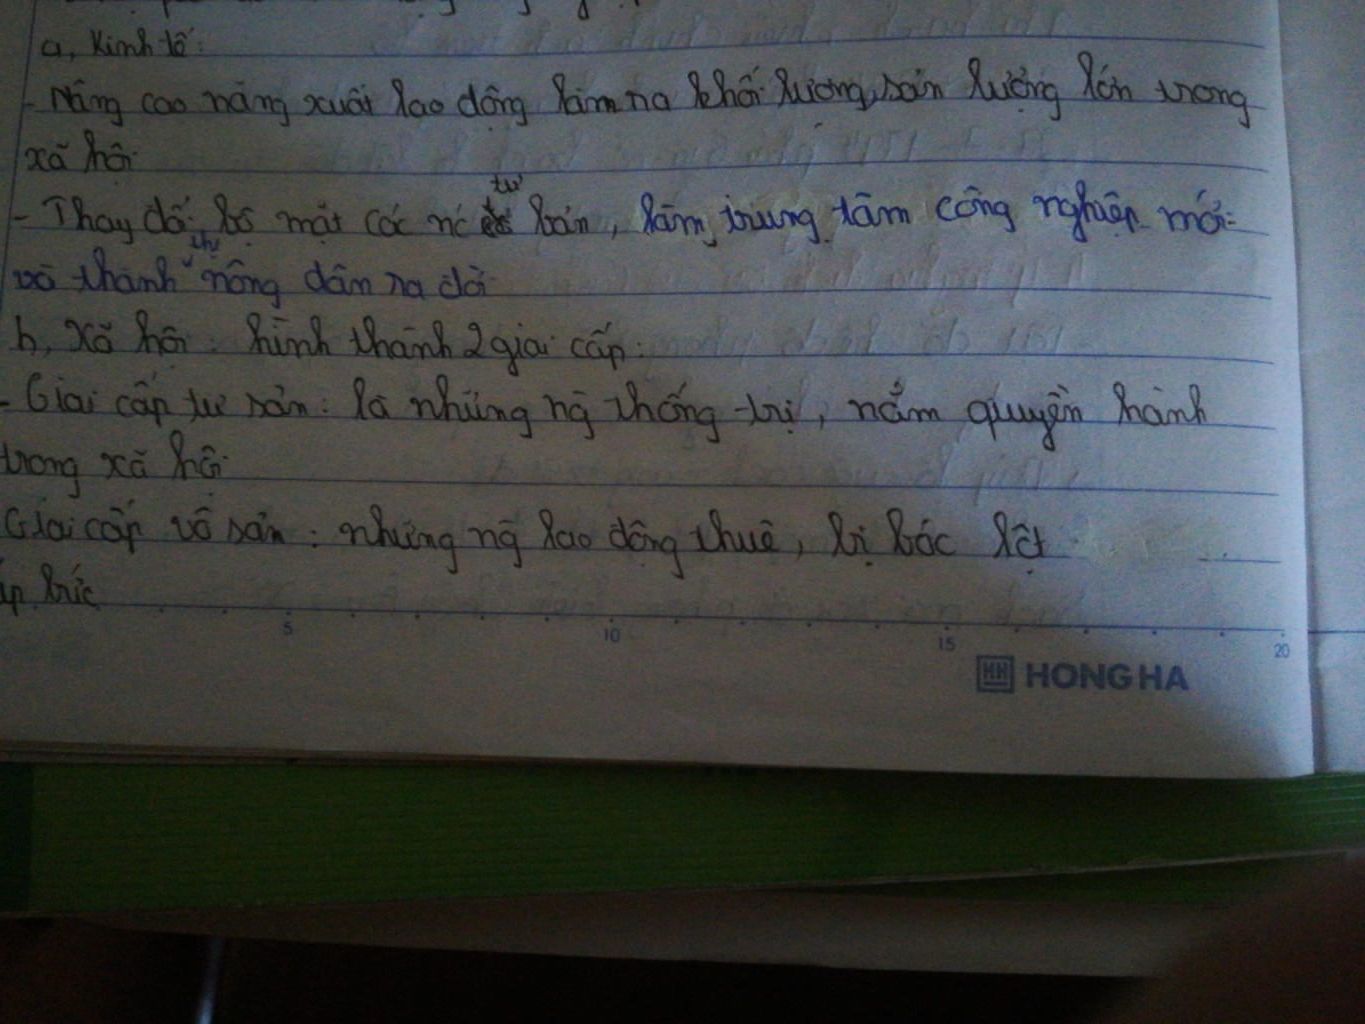 a, Kinh tế:
- Nâng cao năng xuất lao động làm ra khối lượng, sản lượng lớn trong
xã hội
- Thay đổi bộ mặt các nc tư bản, làm, trung tâm công nghiệp mới
và thành thị nông dân ra đời
b, Xã hội: hình thành 2 giai cấp:
- Giai cấp tư sản: là những ng thống trị, nắm quyền hành
trong xã hội
Giai cấp vô sản: những ng lao động thuê, bị bóc lột
áp bức
5 10 15 20
HH HONG HA